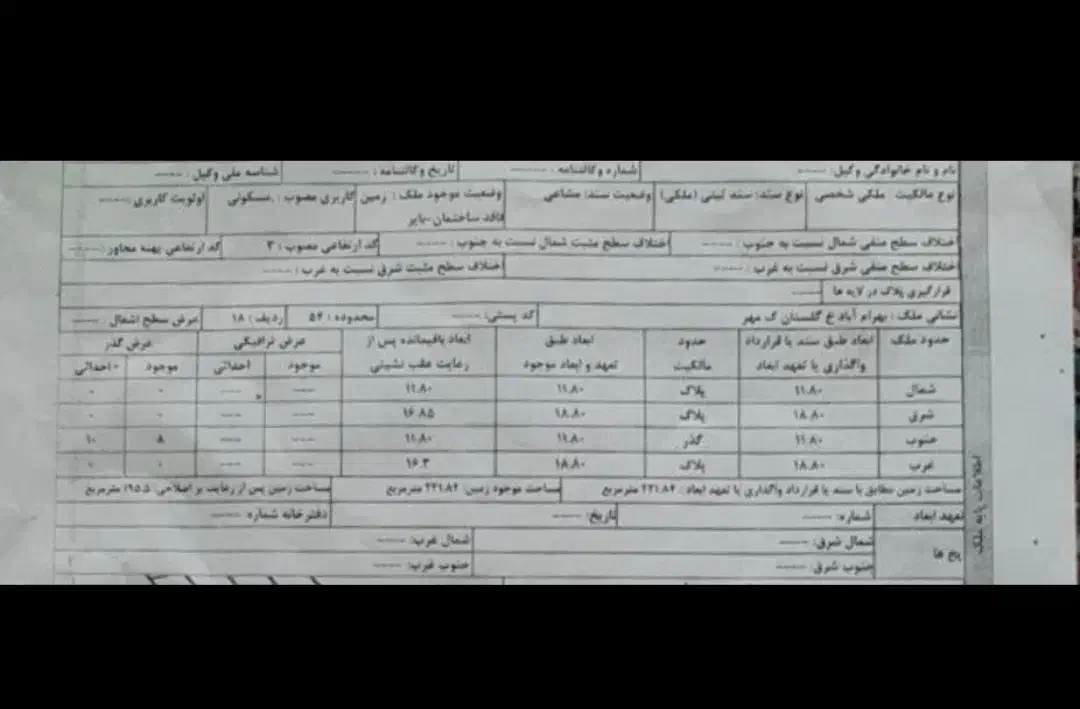 نام و نام خانوادگی وکیل : ----- شماره وکالتنامه : ----- تاریخ وکالتنامه : ----- شناسه ملی وکیل : -----
نوع مالکیت ملکی شخصی نوع سند: سند ثبتی (ملکی) وضعیت سند: مشاعی وضعیت موجود ملک : زمین فاقد ساختمان-بایر کاربری مصوب : مسکونی اولویت کاربری : -----
اختلاف سطح منفی شمال نسبت به جنوب : ----- اختلاف سطح مثبت شمال نسبت به جنوب : ----- کد ارتفاعی مصوب : ۳ کد ارتفاعی پهنه مجاور : -----
اختلاف سطح منفی شرق نسبت به غرب : ----- اختلاف سطح مثبت شرق نسبت به غرب : -----
قرارگیری پلاک در لایه ها -----
نشانی ملک : بهرام آباد خ گلستان ک مهر کد پستی: ----- محدوده : ۵۴ ردیف : ۱۸ عرض سطح اشغال : -----
حدود ملک ابعاد طبق سند یا قرارداد واگذاری یا تعهد ابعاد حدود مالکیت ابعاد طبق تعهد و ابعاد موجود ابعاد باقیمانده پس از رعایت عقب نشینی عرض ترافیکی عرض گذر
موجود احداثی موجود احداثی
شمال ۱۱.۸۰ پلاک ۱۱.۸۰ ۱۱.۸۰ --- --- ۰ ۰
شرق ۱۸.۸۰ پلاک ۱۸.۸۰ ۱۶.۸۵ --- --- ۰ ۰
جنوب ۱۱.۸۰ گذر ۱۱.۸۰ ۱۱.۸۰ --- --- ۸ ۱۰
غرب ۱۸.۸۰ پلاک ۱۸.۸۰ ۱۶.۳ --- --- ۰ ۰
مساحت زمین مطابق با سند یا قرارداد واگذاری یا تعهد ابعاد : ۲۲۱.۸۴ مترمربع مساحت موجود زمین: ۲۲۱.۸۴ مترمربع مساحت زمین پس از رعایت بر اصلاحی: ۱۹۵.۵ مترمربع
تعهد ابعاد شماره: ----- تاریخ: ----- دفترخانه شماره : -----
پخ ها شمال شرق: ----- شمال غرب: -----
جنوب شرق: ----- جنوب غرب: -----
اطلاعات پایه ملک